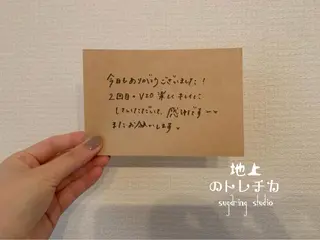 今日もありがとうございました!
2回目のV20楽しくキレイに
していただいて、感謝です
またお願いします。
地上
のトレチカ
sugaring studio